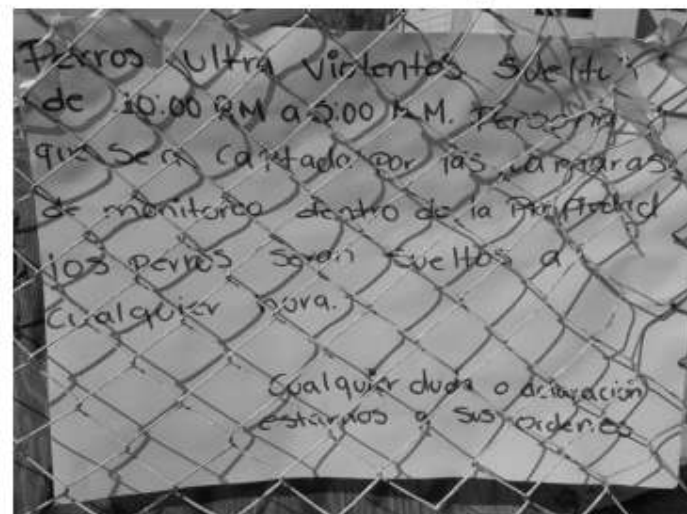 Perros Ultra Violentos Suelto
de 10:00 P.M a 5:00 A.M. Persona
que Sea Captado por las camaras
de monitoreo dentro de la Propiedad
los perros Seran Sueltos a
Cualquier hora.
Cualquier duda o aclaración
estamos a sus ordenes